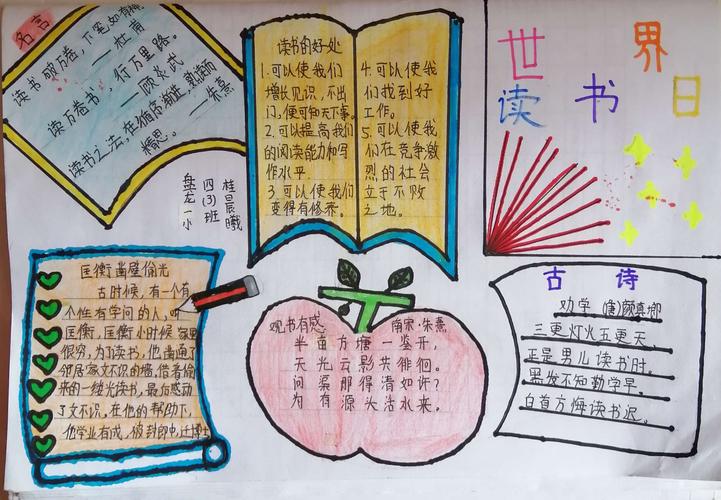 名言
读书破万卷，下笔如有神。
——杜甫
读万卷书，行万里路。
——顾炎武
读书之法，在循序渐进，熟读而
精思。——朱熹
盘龙一小
四(3)班
桂晨曦
读书的好处
1.可以使我们
增长见识，不出
门，便可知天下事。
2.可以提高我们
的阅读能力和写
作水平.
3.可以使我们
变得有修养。
4.可以使我
们找到好
工作。
5.可以使我
们在竞争激
烈的社会
立于不败
之地。
世界
读书日
匡衡凿壁偷光
古时候，有一个有
个性有学问的人，叫
匡衡，匡衡小时候家里
很穷，为了读书，他凿通了
邻居家文不识的墙，借着偷
来的一缕光读书，最后感动
了文不识。在他的帮助下，
他学业有成，被封郎中,迁博士
观书有感 南宋·朱熹
半亩方塘一鉴开，
天光云影共徘徊。
问渠那得清如许？
为有源头活水来。
古诗
劝学 (唐)颜真卿
三更灯火五更天，
正是男儿读书时。
黑发不知勤学早，
白首方悔读书迟。